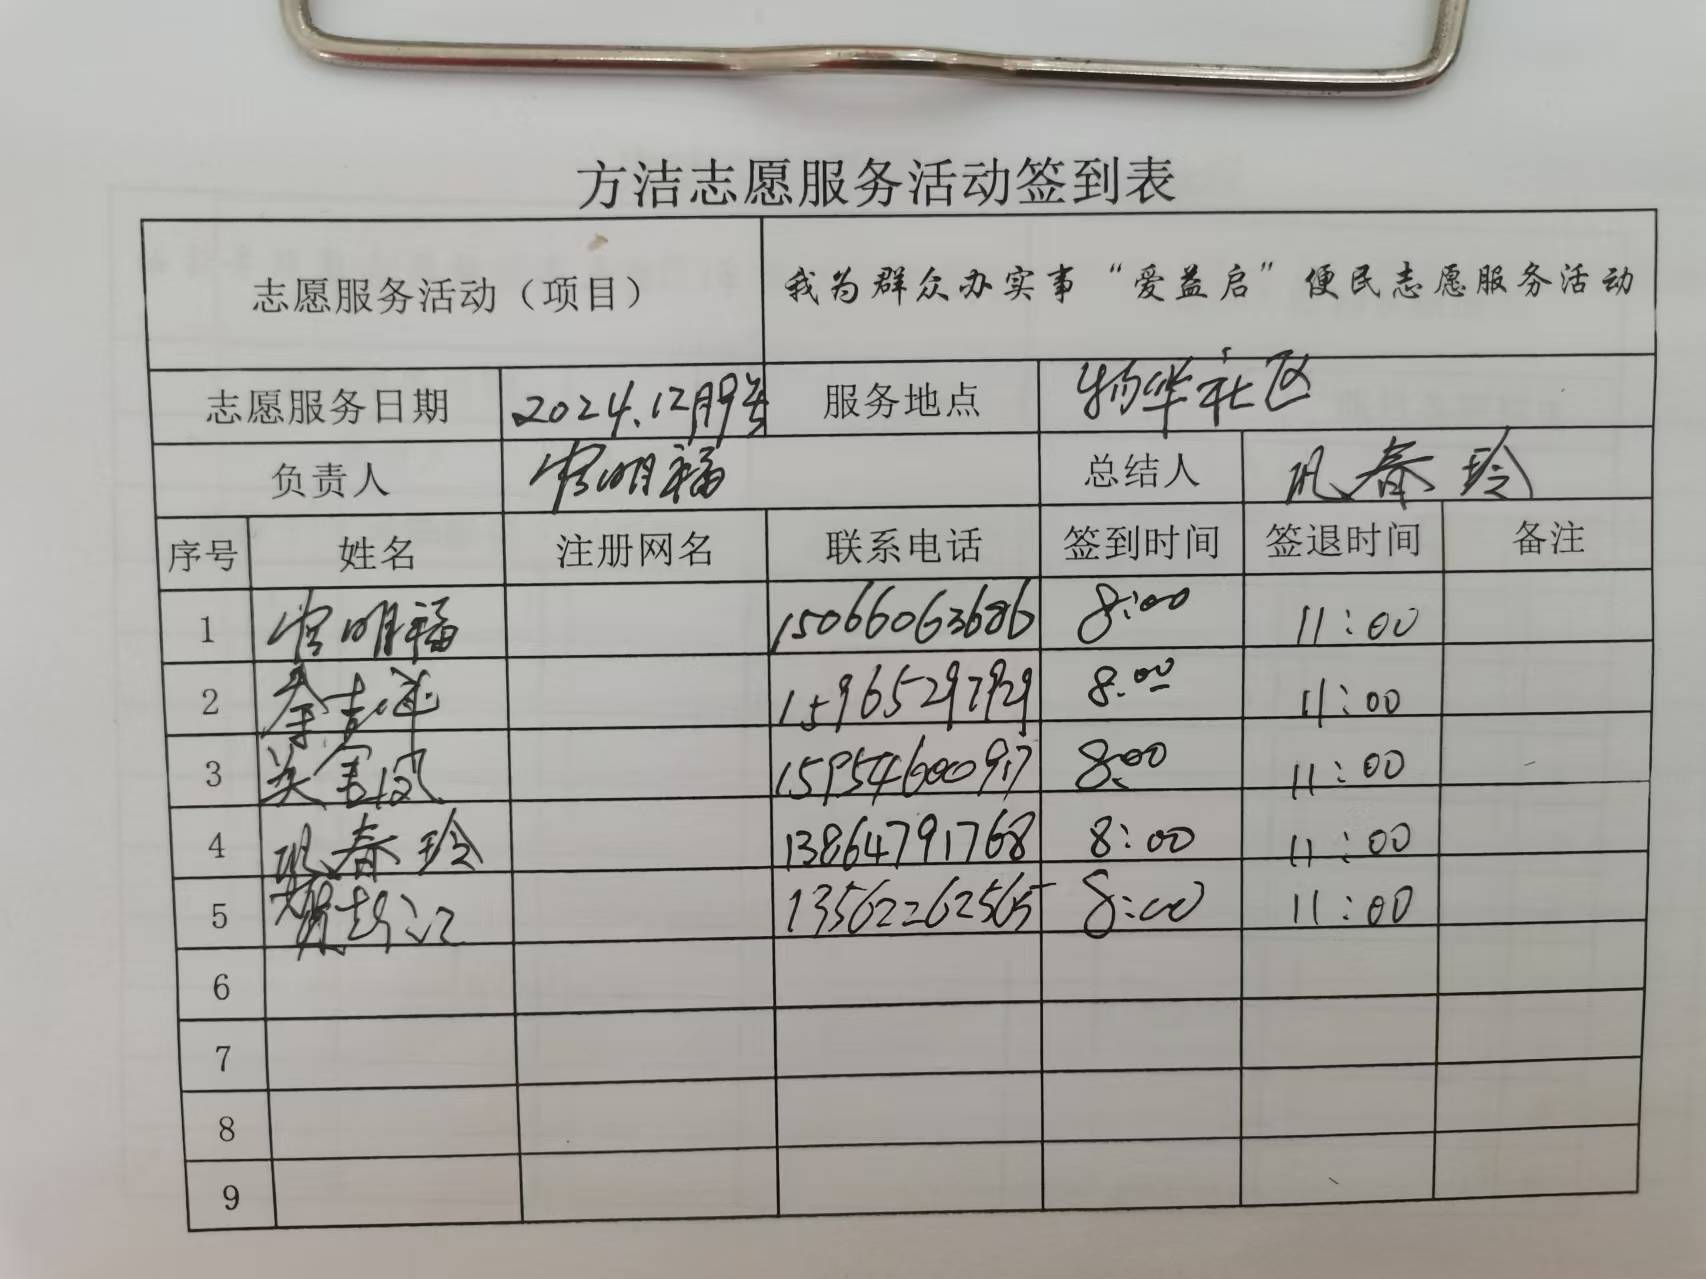 方洁志愿服务活动签到表
志愿服务活动（项目） 我为群众办实事“爱益启”便民志愿服务活动
志愿服务日期 2024.12月9号 服务地点 物华社区
负责人 官明福 总结人 巩春玲
序号 姓名 注册网名 联系电话 签到时间 签退时间 备注
1 官明福 15066063686 8:00 11:00
2 15965297929 8:00 11:00
3 15954600917 8:00 11:00
4 巩春玲 13864791768 8:00 11:00
5 13562262565 8:00 11:00
6
7
8
9